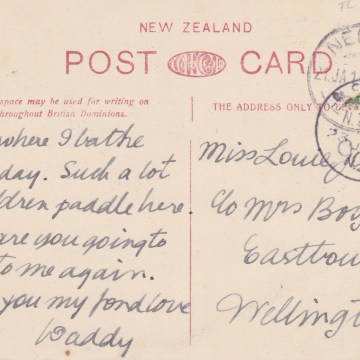 NEW ZEALAND
POST CARD
space may be used for writing on
throughout British Dominions.
THE ADDRESS ONLY TO
where I bathe
day. Such a lot
ldren paddle here.
are you going to
to me again.
you my fond love
Daddy
Miss Louie
c/o Mrs Boy
Eastbou
Wellingt